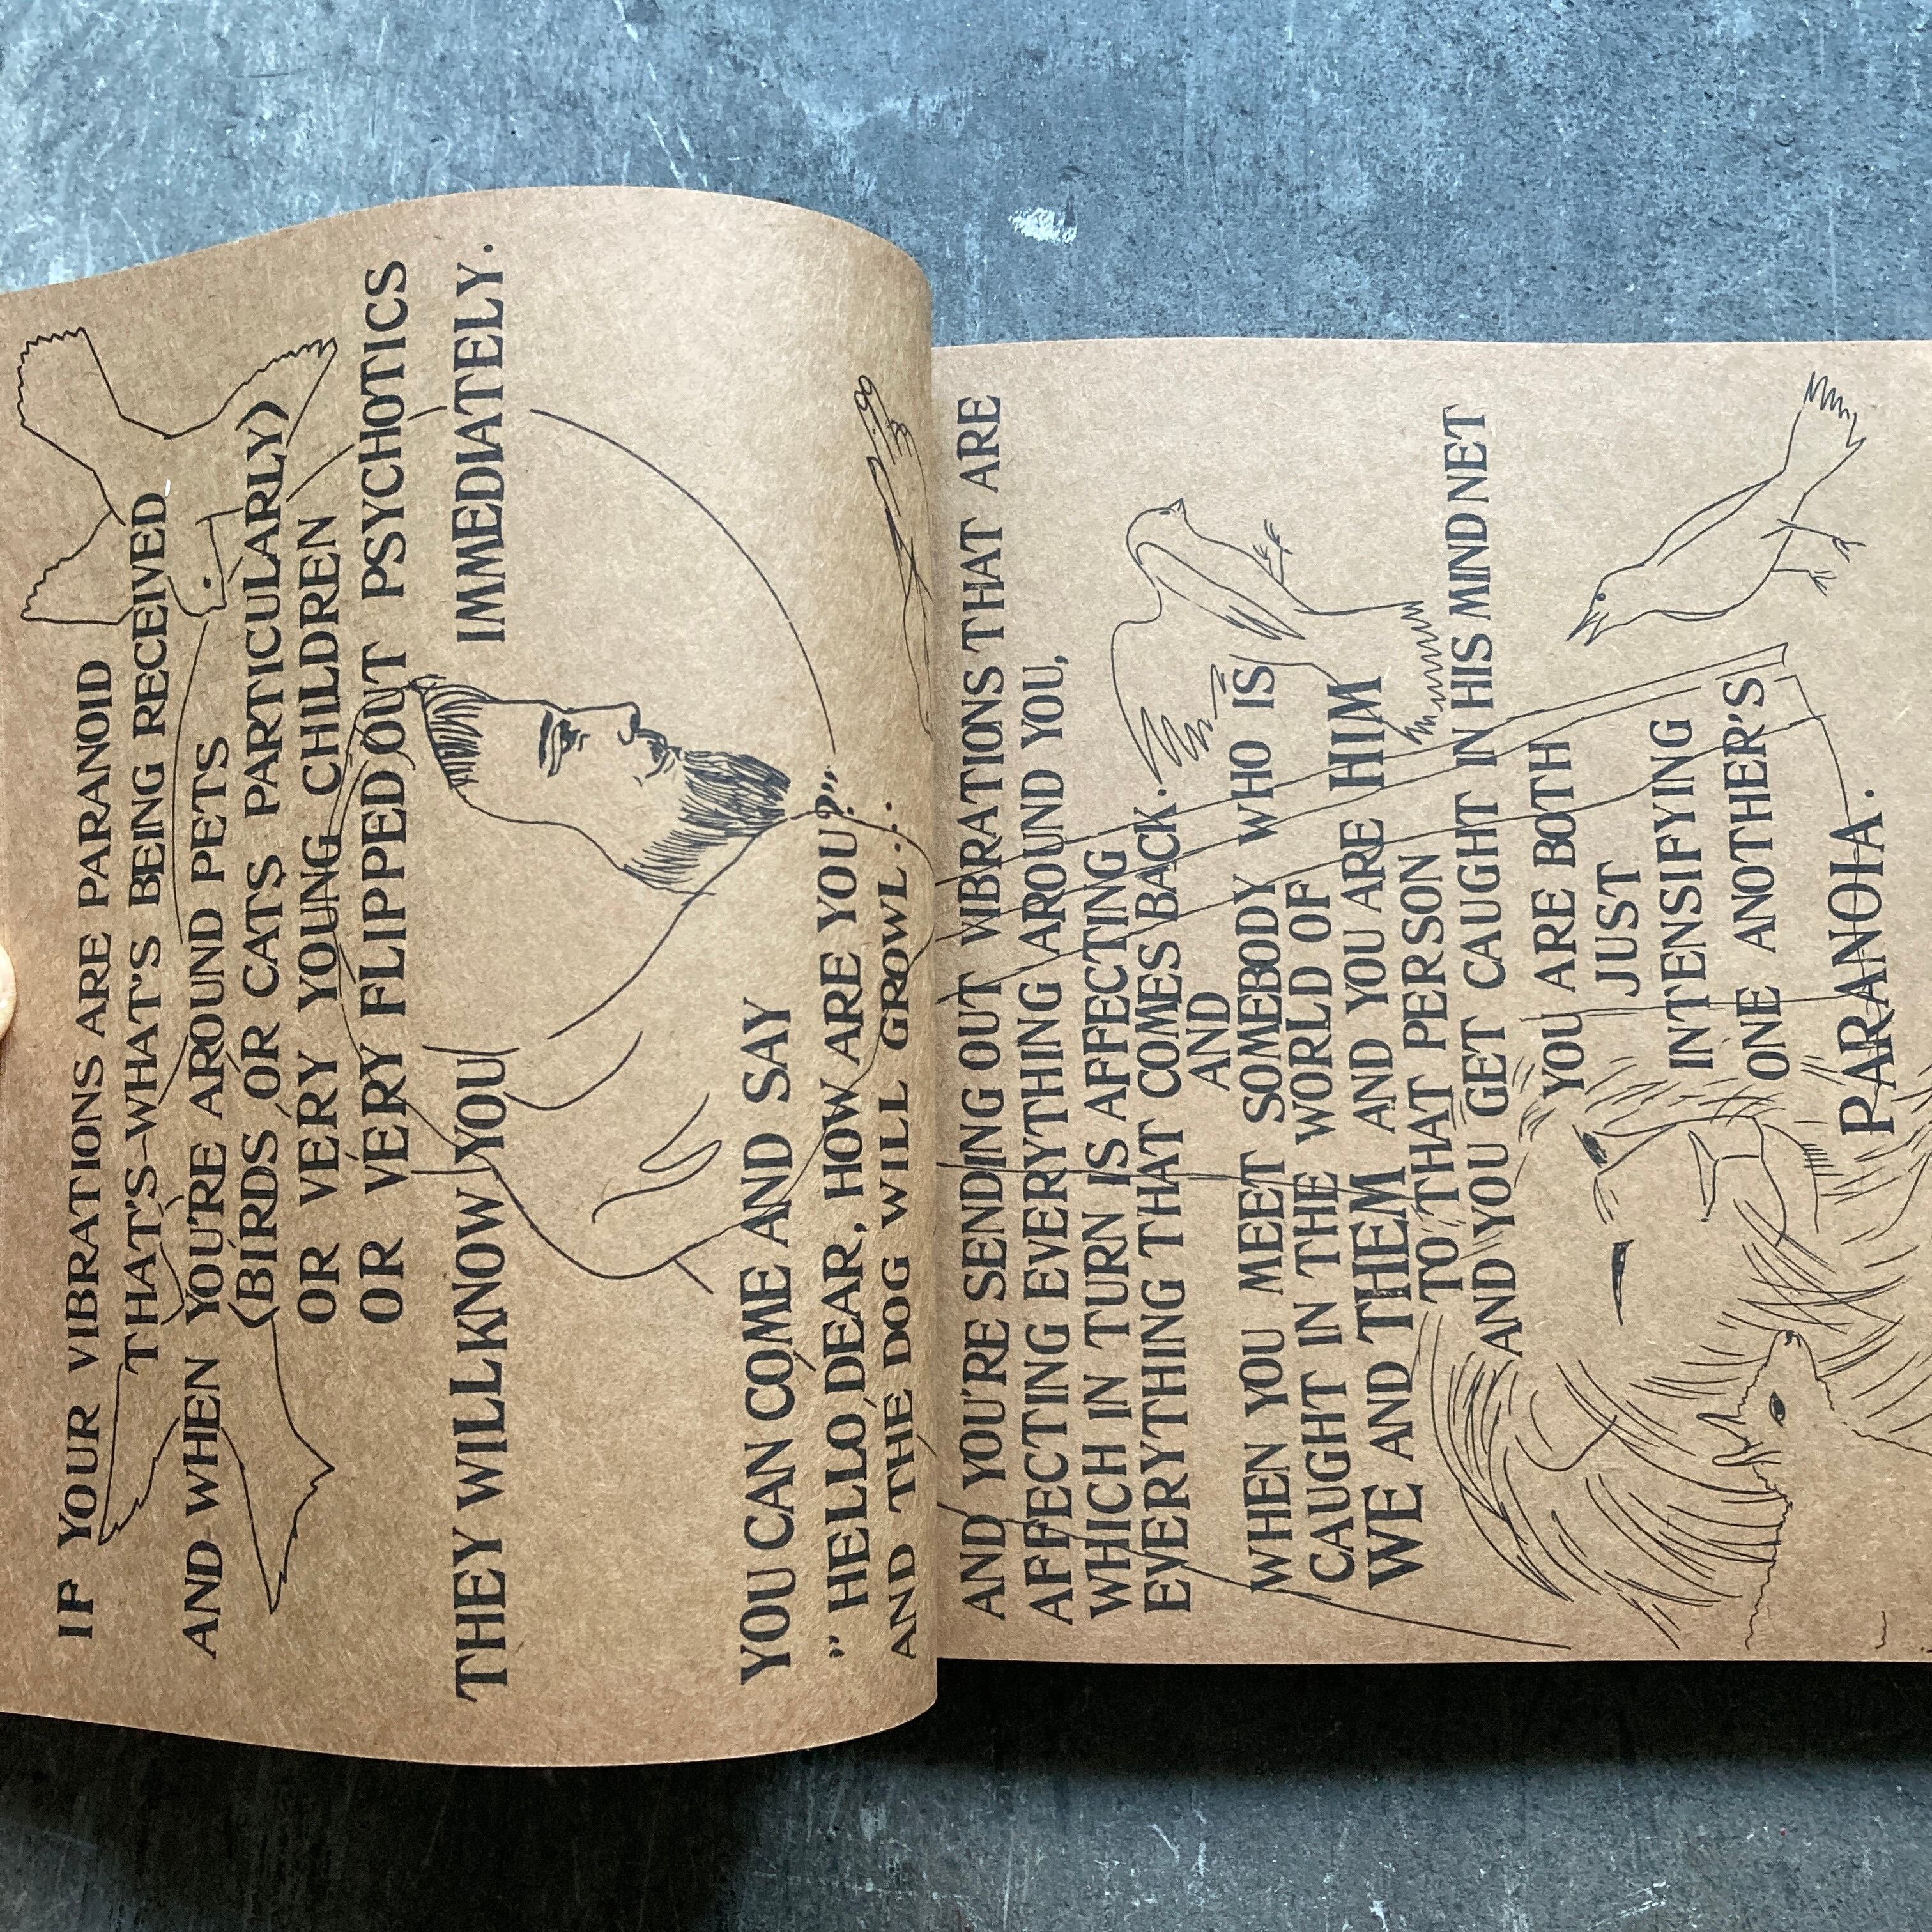 IF YOUR VIBRATIONS ARE PARANOID
THAT'S-WHAT'S BEING RECEIVED
AND WHEN YOU'RE AROUND PETS
(BIRDS OR CATS PARTICULARLY)
OR VERY YOUNG CHILDREN
OR VERY FLIPPED OUT PSYCHOTICS
THEY WILL KNOW YOU IMMEDIATELY.
YOU CAN COME AND SAY
"HELLO, DEAR, HOW ARE YOU?"
AND THE DOG WILL GROWL...
AND YOU'RE SENDING OUT VIBRATIONS THAT ARE
AFFECTING EVERYTHING AROUND YOU,
WHICH IN TURN IS AFFECTING
EVERYTHING THAT COMES BACK.
AND
WHEN YOU MEET SOMEBODY WHO IS
CAUGHT IN THE WORLD OF
WE AND THEM AND YOU ARE HIM
TO THAT PERSON
AND YOU GET CAUGHT IN HIS MIND NET
YOU ARE BOTH
JUST
INTENSIFYING
ONE ANOTHER'S
PARANOIA.